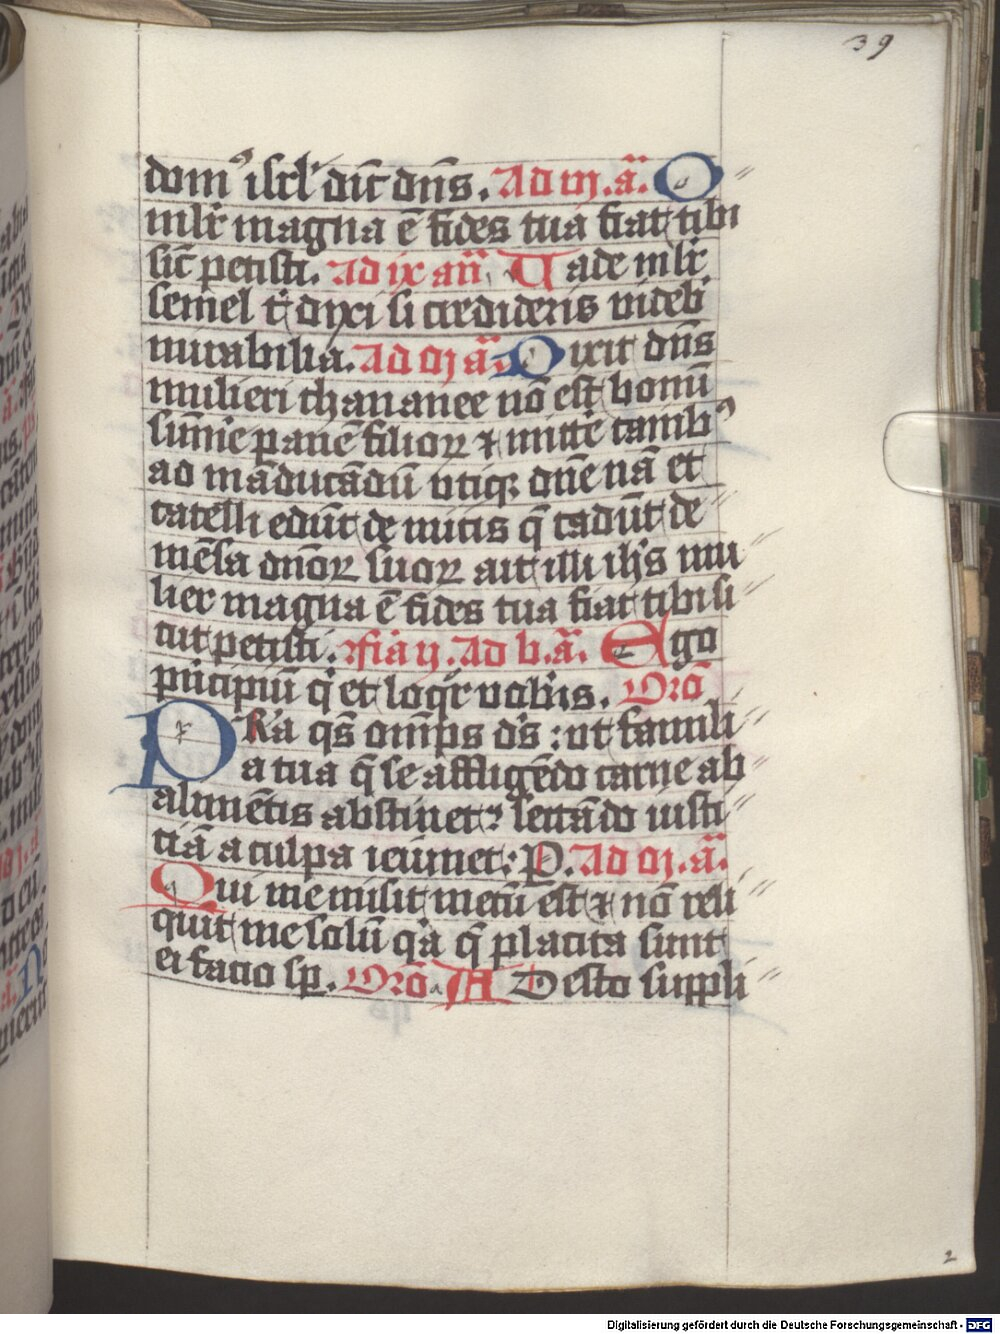 39
domꝰ isrl' dic̄ dn̄s. Ad vj. ā. O
mlr̄ magna ē fides tua fiat tibi
sic̄ petisti. Ad ix an̄ Vade mlr̄
semel t' dixi si credideris videb'
mirabilia. Ad vj ā. Dixit dn̄s
mulieri chananee nō est bonū
sum̄e panē filioꝝ ⁊ mitt'e canibꝰ
ad māducādū vtiqꝫ dn̄e nā et
catelli edūt de micis q̄ cadūt de
mēsa dn̄oꝝ suoꝝ ait illi ih̄s mu
lier magna ē fides tua fiat tibi si
cut petisti. fia v. Ad b. ā. Ego
pͥncipiū qͥ et loqr̄ vobis. Orō
Pr̄a qs̄ om̄ps ds̄: ut famili
a tua q̄ se affligēdo carne ab
alimētis abstinet: sectādo iusti
tiā a culpa ieiunet: P. Ad vj. ā.
Qui me misit mecū est ⁊ nō reli
quit me solū qͥa q̄ placita sunt
ei facio sp̱. Orō. ADesto suppli
2
Digitalisierung gefördert durch die Deutsche Forschungsgemeinschaft - DFG